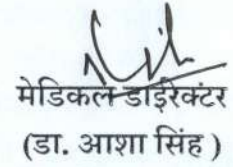 मेडिकल डाईरेक्टर
(डा. आशा सिंह )